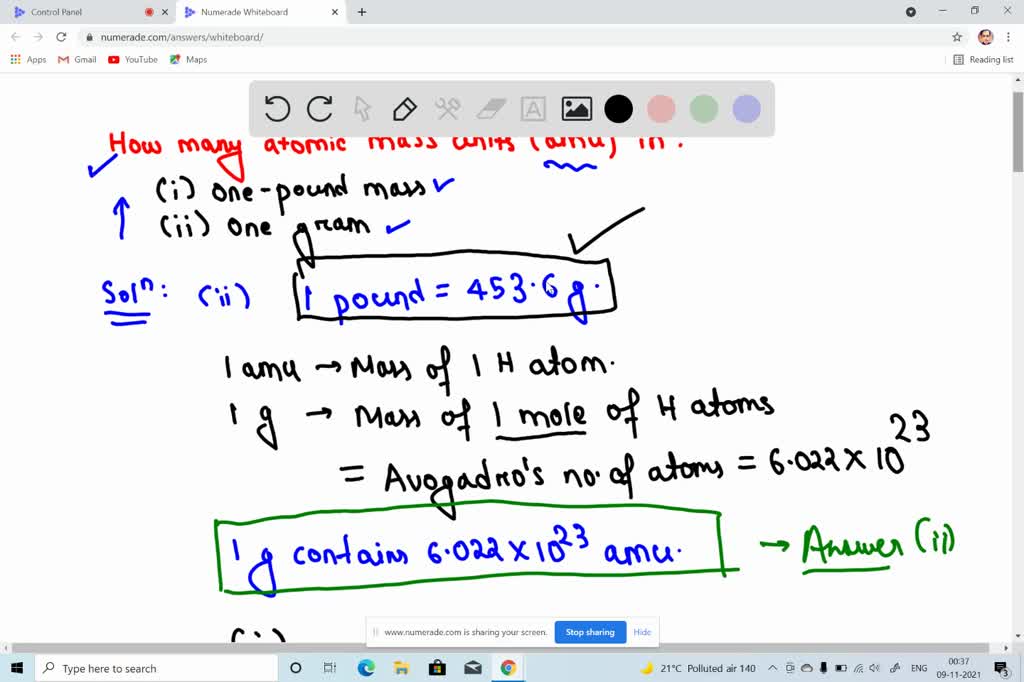 Control Panel
Numerade Whiteboard
numerade.com/answers/whiteboard/
Apps Gmail YouTube Maps Reading list
A
How many atomic mass units (amu) in:
(i) one-pound mass
(ii) one gram
Solⁿ: (ii) 1 pound = 453.6 g.
1 amu → Mass of 1 H atom.
1 g → Mass of 1 mole of H atoms
= Avogadro's no. of atoms = 6.022 × 10²³
1 g contains 6.022 × 10²³ amu. → Answer (ii)
(i)
www.numerade.com is sharing your screen. Stop sharing Hide
Type here to search
21°C Polluted air 140 ENG 00:37
09-11-2021
3